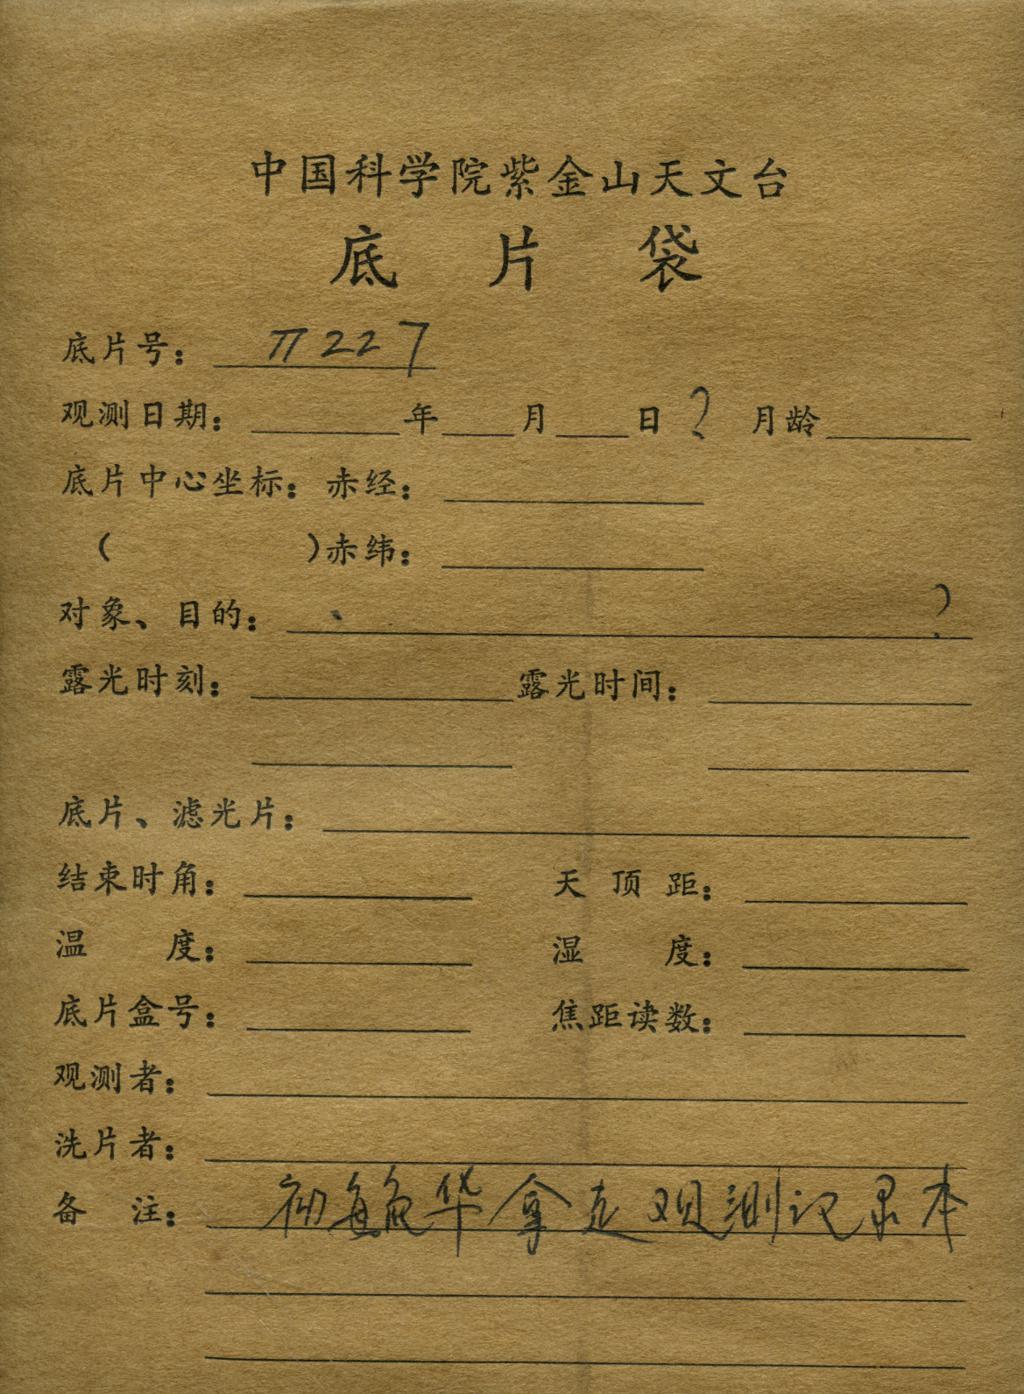 中国科学院紫金山天文台
底片袋
底片号： π227
观测日期： 年 月 日 ? 月龄
底片中心坐标：赤经：
( )赤纬：
对象、目的： ?
露光时刻： 露光时间：
底片、滤光片：
结束时角： 天顶距：
温度： 湿度：
底片盒号： 焦距读数：
观测者：
洗片者：
备注： 华拿走观测记录本